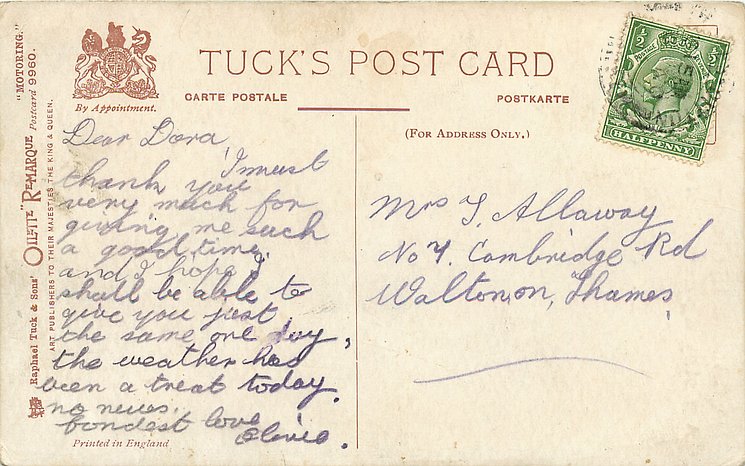 "MOTORING."
Postcard 9960.
"OILETTE" REMARQUE
Raphael Tuck & Sons'
ART PUBLISHERS TO THEIR MAJESTIES THE KING & QUEEN.
By Appointment.
TUCK'S POST CARD
CARTE POSTALE
POSTKARTE
(FOR ADDRESS ONLY.)
½ ½
HALFPENNY
Dear Dora
I must
thank you
very much for
giving me such
a good time,
and I hope I
shall be able to
give you just
the same one day,
the weather has
been a treat today.
no news.
fondest love
Printed in England
Mrs Allaway
No 4. Cambridge Rd
Walton, on, Thames